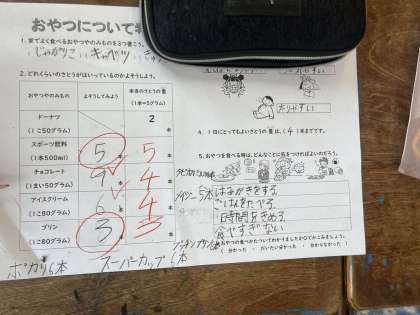 おやつについて
1. 家でよく食べるおやつやのみものを3つ書こう。
じゃがりこ キャベツ
2. どれくらいのさとうがはいっているのかよそうしよう。
おやつやのみもの
よそうしてみよう
本当のさとうの量
(1本=5グラム)
ドーナツ
(1こ50グラム)
2
本
スポーツ飲料
(1本500ml)
5
本
5
本
チョコレート
(1まい50グラム)
9
本
4
本
アイスクリーム
(1こ80グラム)
6
本
4
本
プリン
(1こ80グラム)
3
本
3
本
ポカリ6本
スーパーカップ6本
太りやすい
4. 1日にとってもよいさとうの量は、(4)本までです。
5. おやつを食べる時は、どんなことに気をつければよいのだろう。
はみがきをする。
ごはんをたべる。
時間をきめる。
食べすぎない
おやつの食べかたについてわかりましたか○でかこみましょう。
(分かった だいたい分かった 分からなかった)